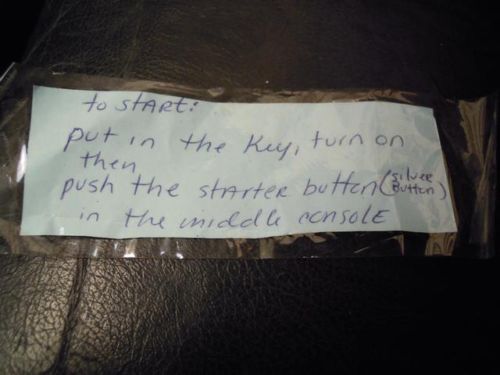 to start:
put in the key, turn on
then
push the starter button (silver button)
in the middle console